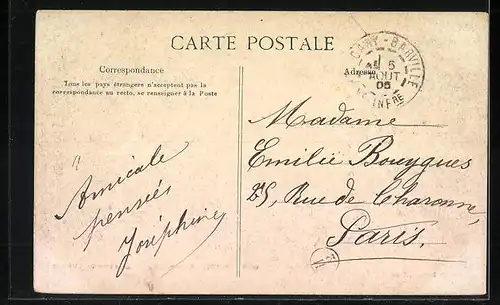 CARTE POSTALE
Correspondance
Tous les pays étrangers n'acceptent pas la
correspondance au recto, se renseigner à la Poste
Adresse
CANY-BARVILLE
5
AOUT
05
INFRE
Madame
Emilie Bouygues
25, Rue de Charonne,
Paris.
Amicale
pensées
Joséphine